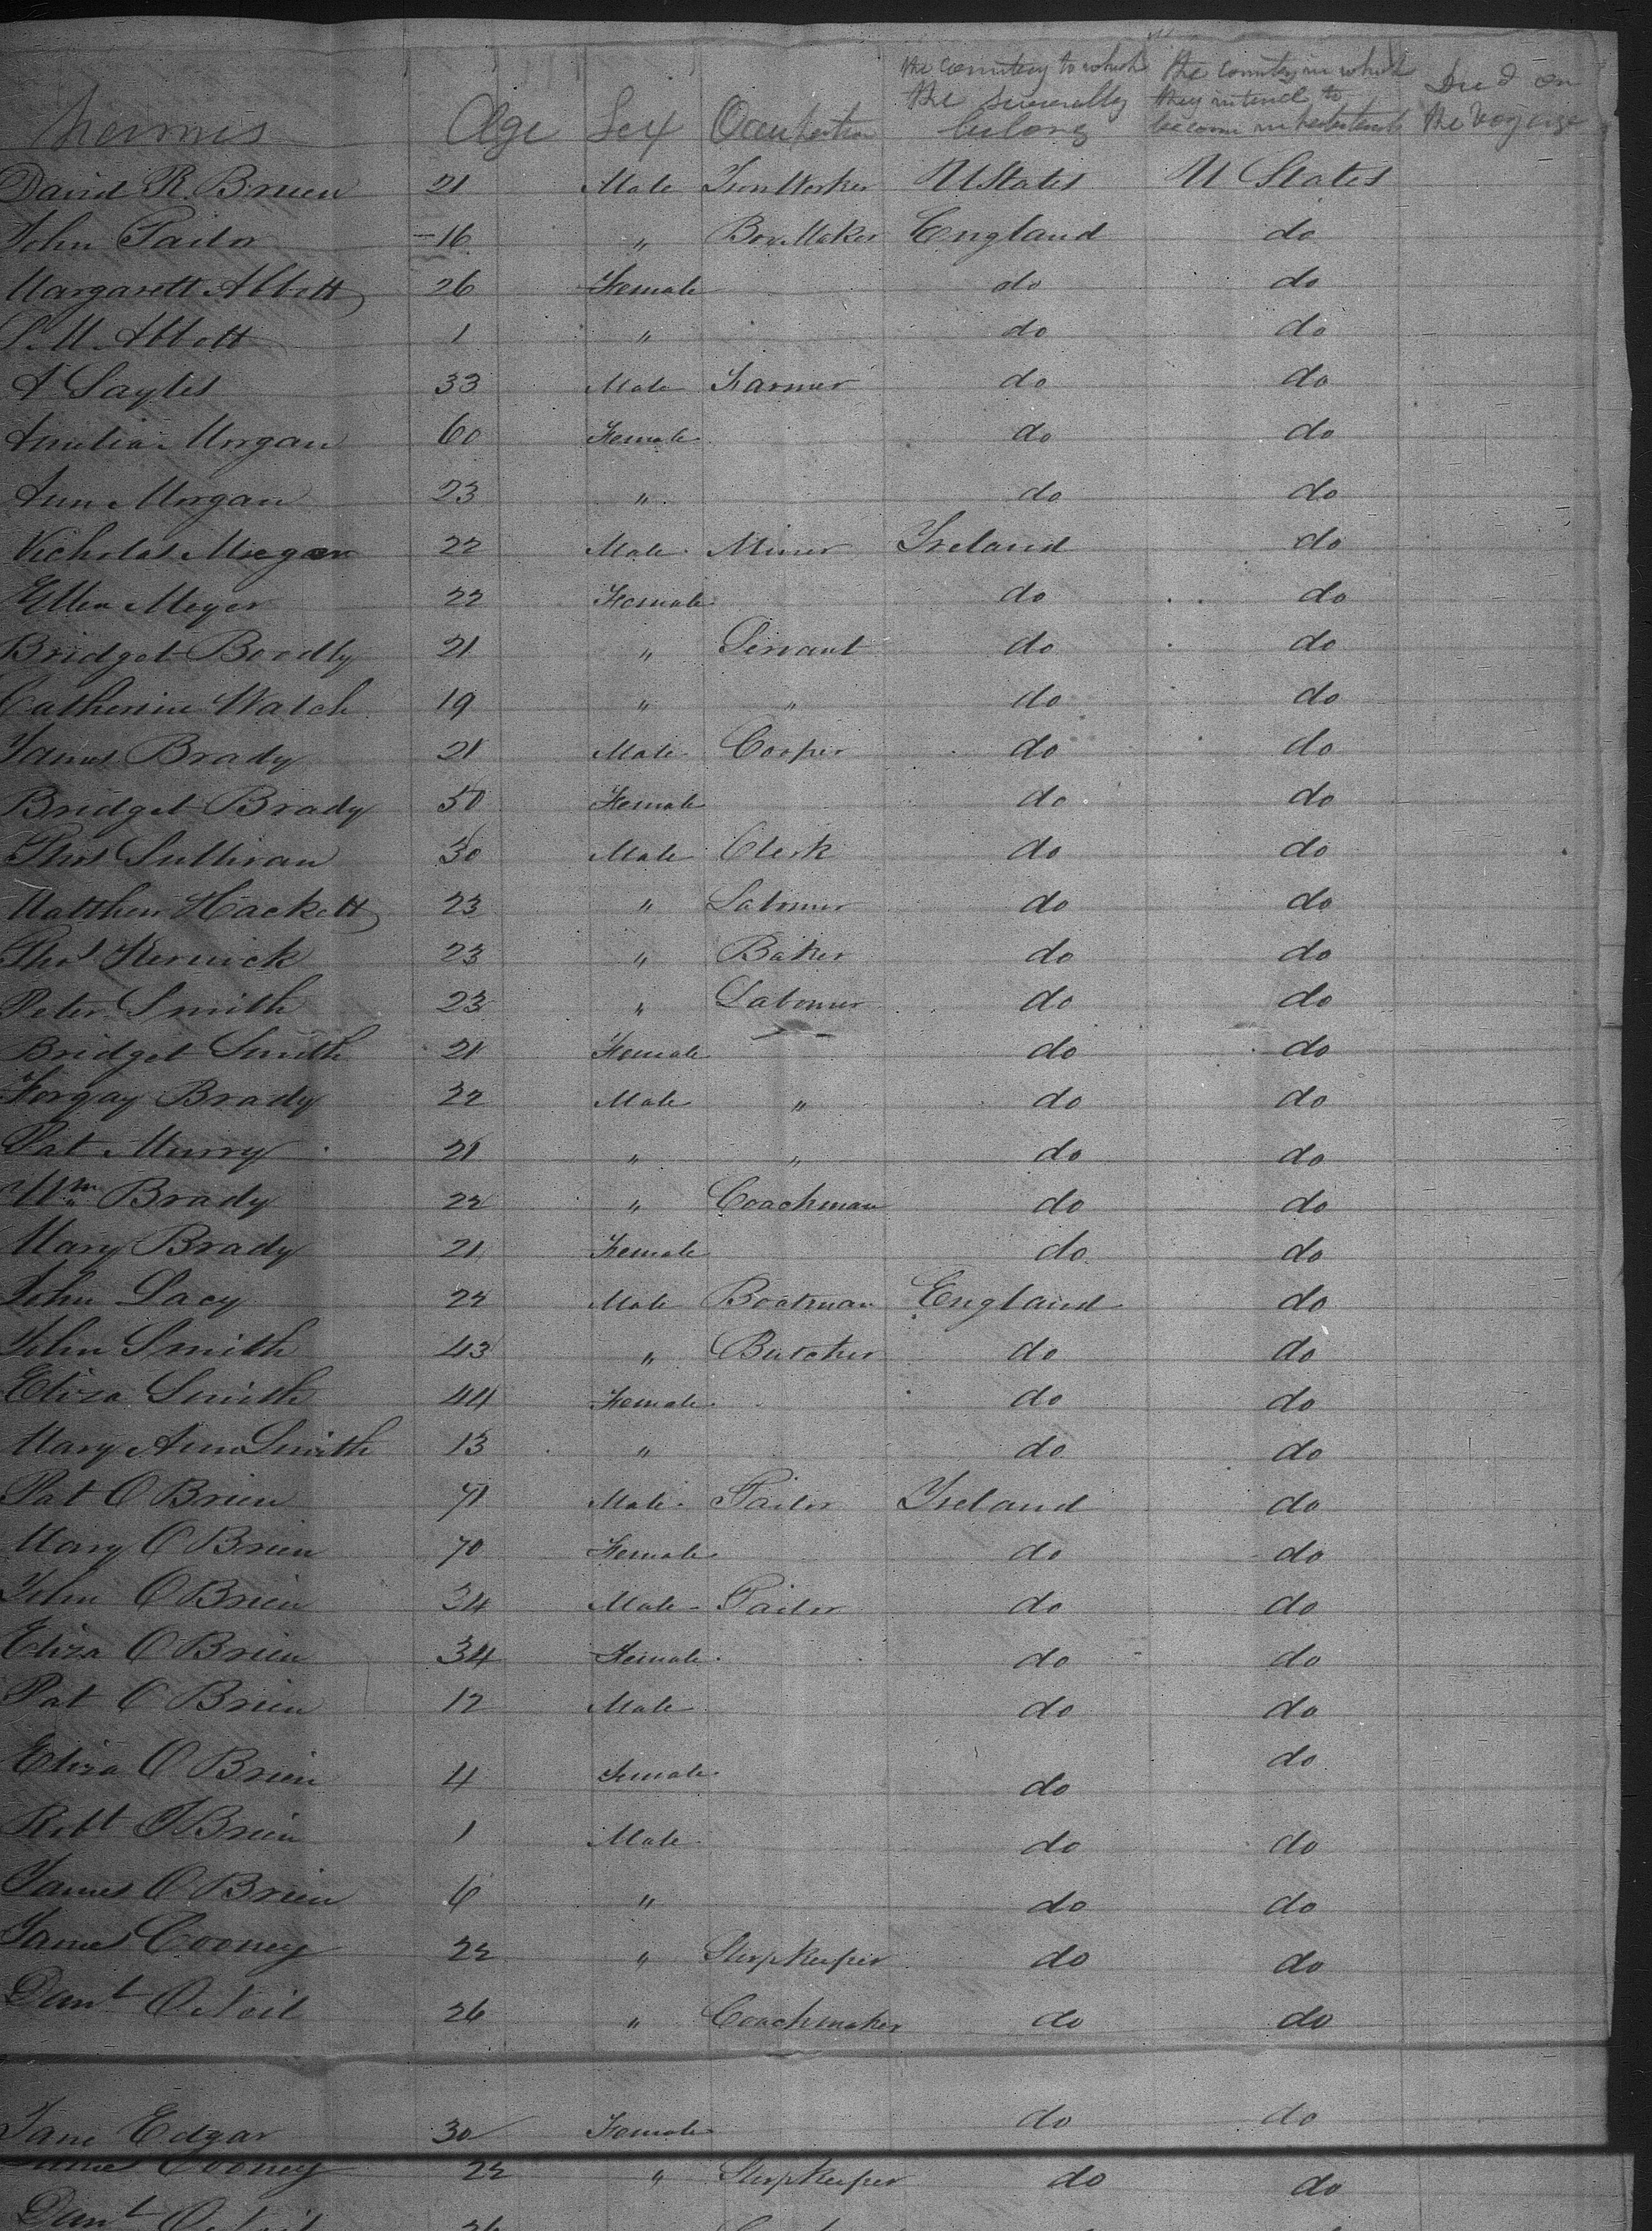 Names Age Sex Occupation the country to which the severally belong the country in which they intend to become inhabitants Died on the Voyage
David R. Bruen 21 Male Iron Worker U States U States
John Tailor 16 " Box Maker England do
Margarett Abbott 26 Female do do
S. M. Abbott 1 " do do
A Sayles 33 Male Farmer do do
Amelia Morgan 60 Female do do
Ann Morgan 23 " do do
Nicholas 22 Male Miner Ireland do
Ellen Meyer 22 Female do do
Bridget Boodly 21 " Servant do do
Catherine Walch 19 " " do do
James Brady 21 Male Cooper do do
Bridget Brady 50 Female do do
Thos Sullivan 30 Male Clerk do do
Matthew Hackett 23 " Labourer do do
Thos Kerwick 23 " Baker do do
Peter Smith 23 " Labourer do do
Bridget Smith 21 Female do do
Forgay Brady 22 Male " do do
Pat Murry 21 " " do do
Wm Brady 22 " Coachman do do
Mary Brady 21 Female do do
John Lacy 22 Male Boatman England do
John Smith 43 " Butcher do do
Eliza Smith 44 Female do do
Mary Ann Smith 13 " do do
Pat O Brien 71 Male Tailor Ireland do
Mary O Brien 70 Female do do
John O Brien 34 Male Tailor do do
Eliza O Brien 34 Female do do
Pat O Brien 12 Male do do
Eliza O Brien 4 Female do do
Robt O Brien 1 Male do do
James O Brien 6 " do do
James Cooney 22 " Shopkeeper do do
Danl O Neil 26 " Coachmaker do do
Jane Edgar 30 Female do do
James Cooney 22 " Shopkeeper do do
Danl O Neil 26